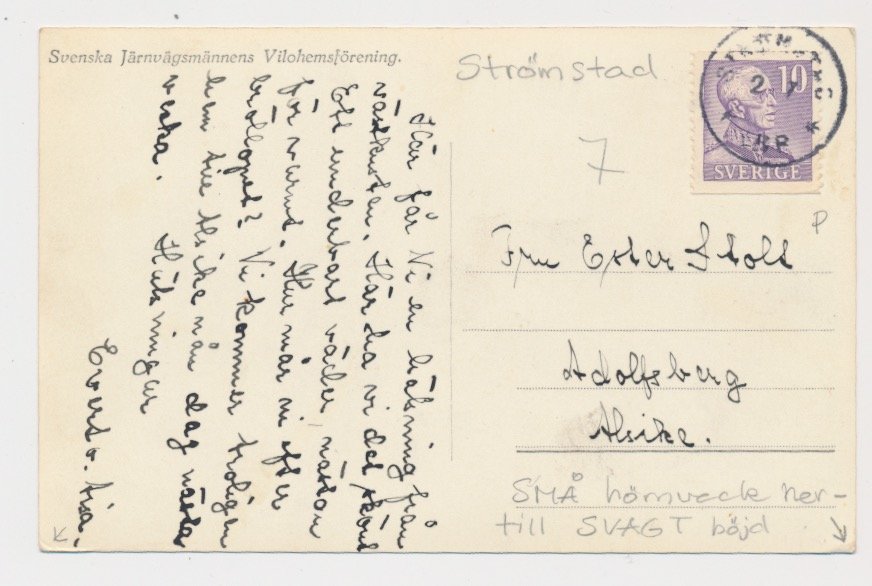 Svenska Järnvägsmännens Vilohemsförening.
Strömstad
10
SVERIGE
2 7
LBR
7
P
Här får Ni en hälsning från
västkusten. Här ha vi det skönt
Ett underbart väder, nästan
för varmt. Hur mår ni efter
bröllopet? Vi kommer troligen
hem till Alsike nån dag nästa
vecka. Hälsningar
Evert o. Aisa.
Fru Ester Stolt
Adolfsberg
Alsike.
SMÅ hörnveck ner-
till SVAGT böjd